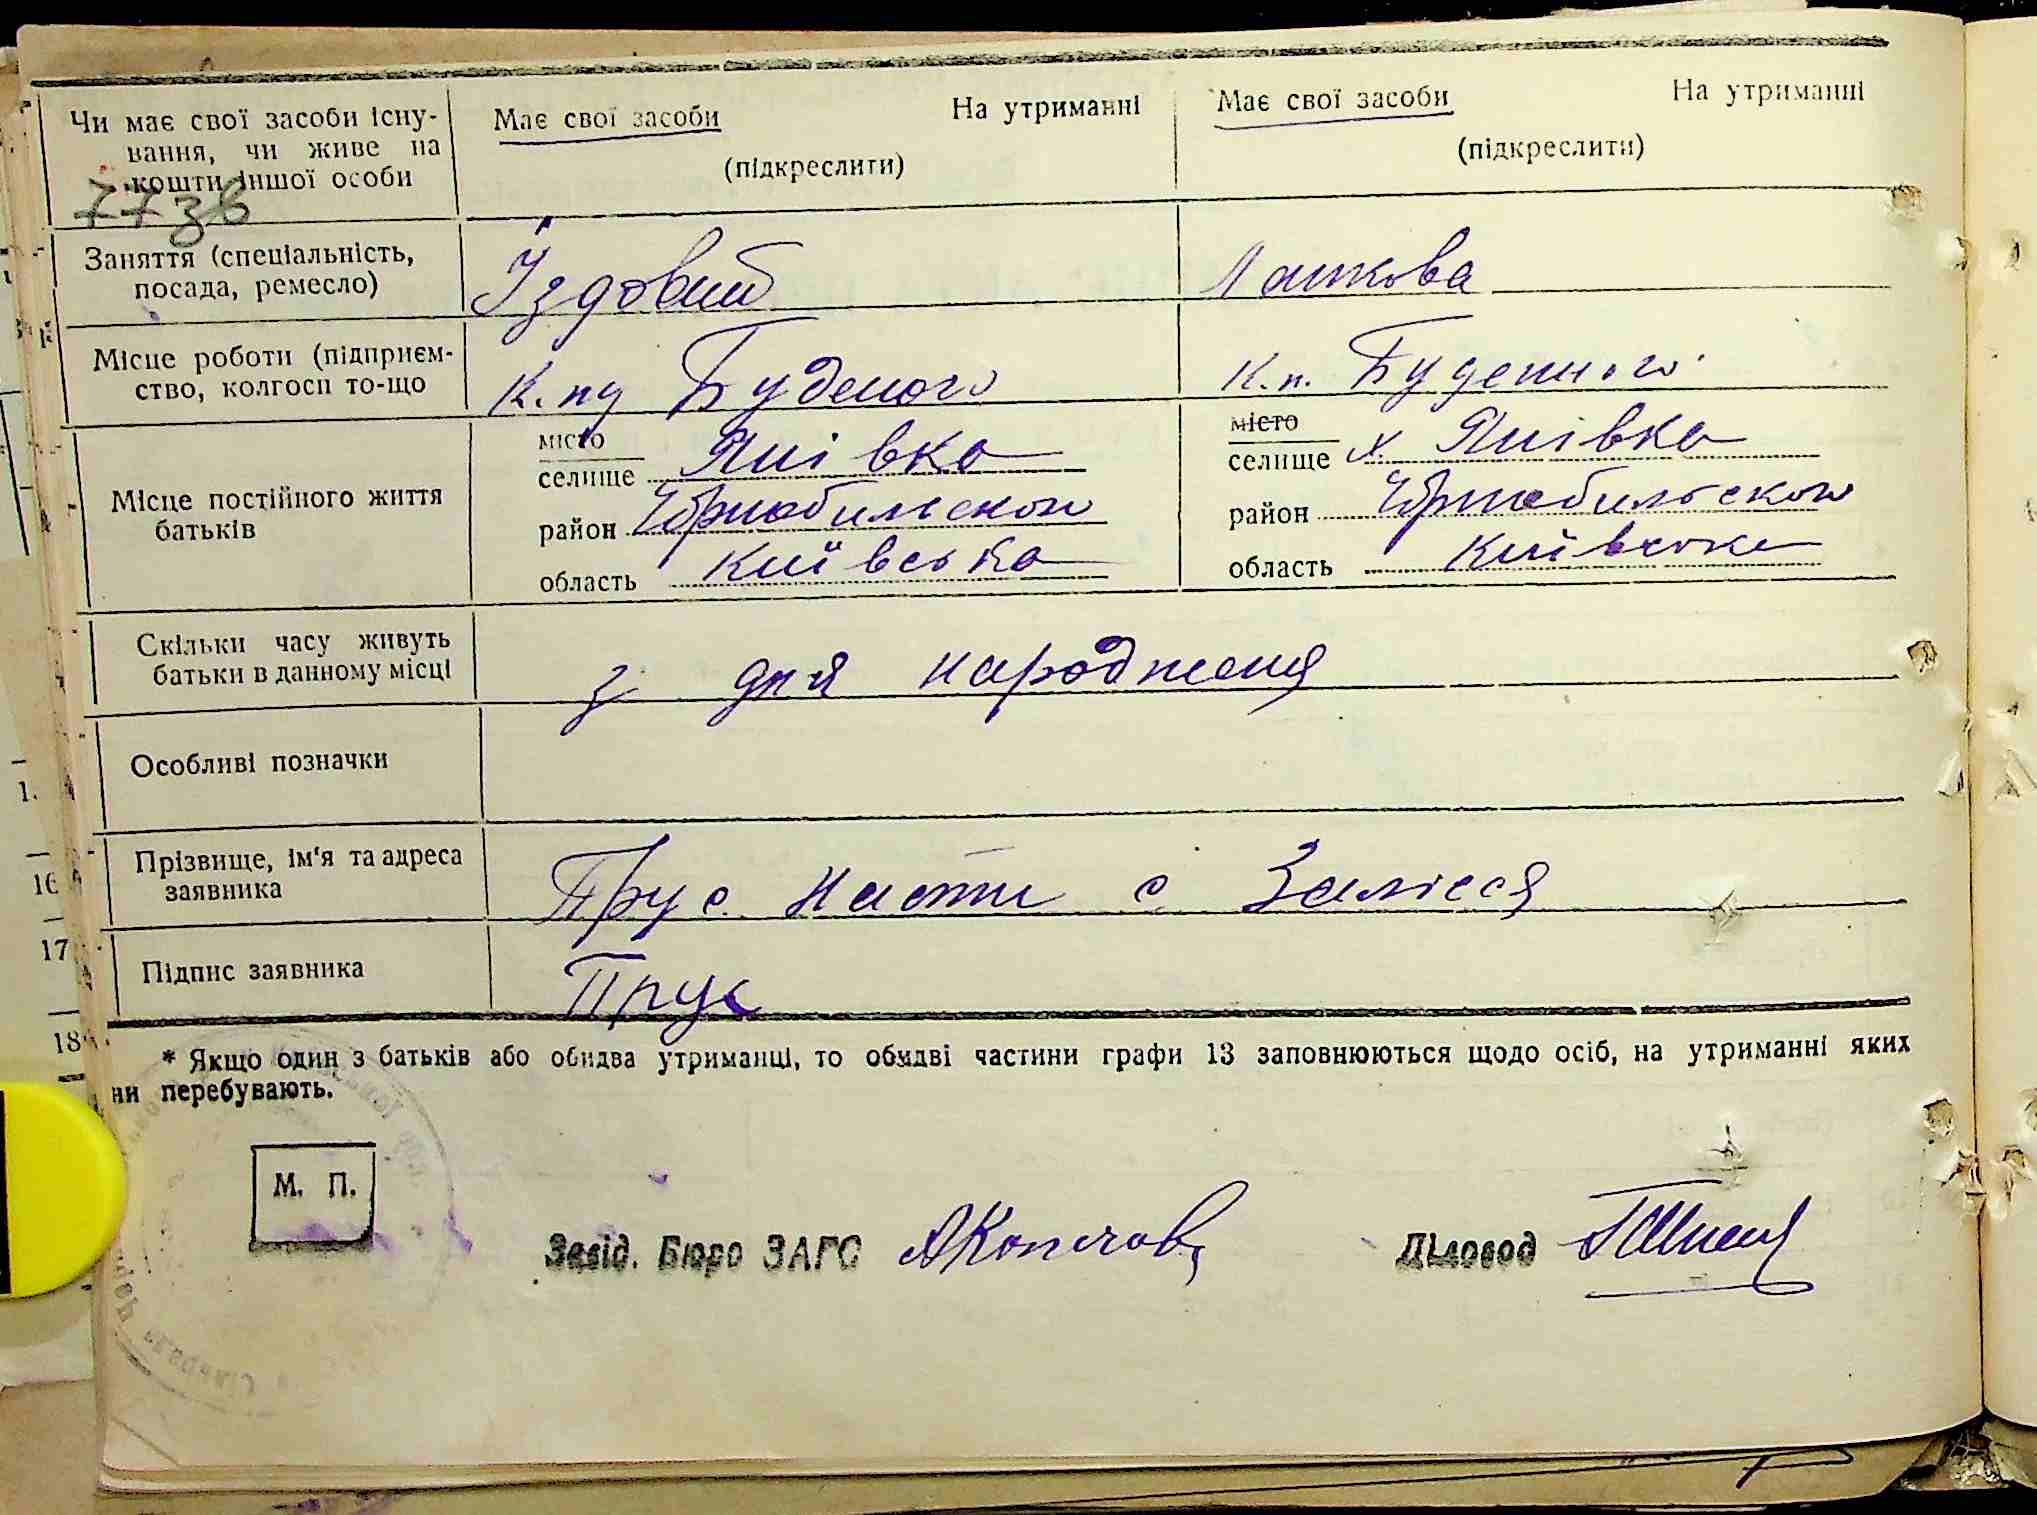 Чи має свої засоби існу-
вання, чи живе на
кошти іншої особи
77 зв
Має свої засоби На утриманні
(підкреслити)
Має свої засоби На утриманні
(підкреслити)
Заняття (спеціальність,
посада, ремесло)
Їздовий
Ланкова
Місце роботи (підприєм-
ство, колгосп то-що
К. пу Буденого
К. п. Буденного
Місце постійного життя
батьків
місто
селище Янівка
район Чорнобильского
область Київська
місто
селище х. Янівка
район Чорнобильского
область Київська
Скільки часу живуть
батьки в данному місці
з дня народженя
Особливі позначки
Прізвище, ім'я та адреса
заявника
Прус Настя с Залісся
Підпис заявника
Прус
* Якщо один з батьків або обидва утриманці, то обидві частини графи 13 заповнюються щодо осіб, на утриманні яких
ни перебувають.
М. П.
Завід. Бюро ЗАГС
Діловод
1.
16
17
18